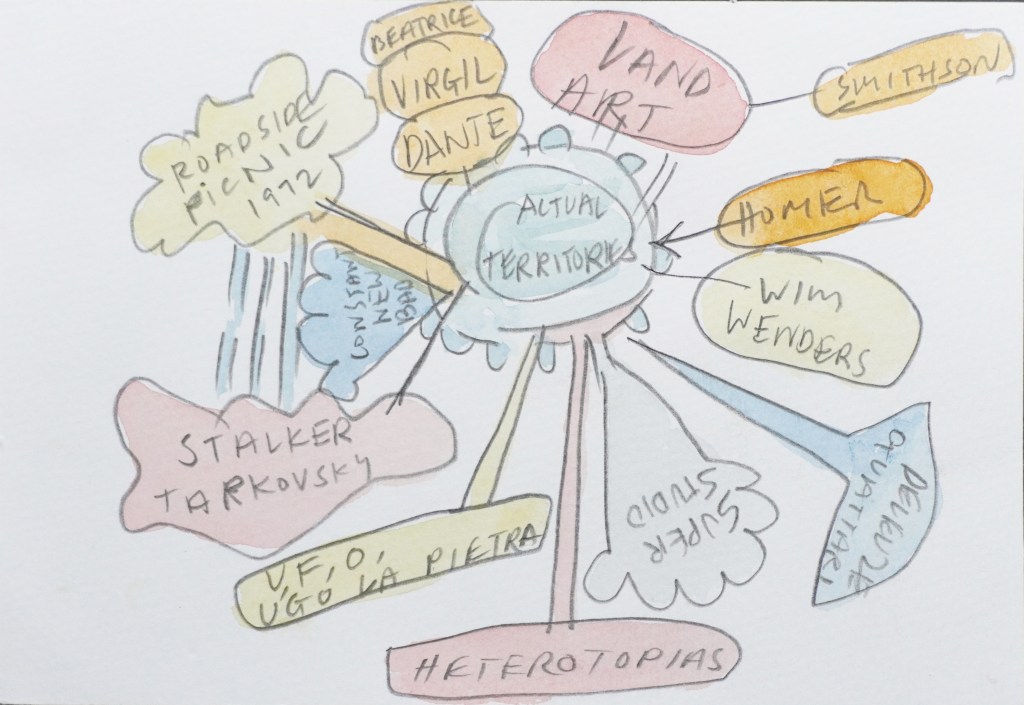 BEATRICE
VIRGIL
DANTE
LAND
ART
SMITHSON
ROADSIDE
PICNIC
1972
ACTUAL
TERRITORIES
HOMER
WIM
WENDERS
CONSTANT
NEW
BAB
STALKER
TARKOVSKY
U,F,O,
UGO LA PIETRA
SUPER
STUDIO
DELEUZE
GUATTARI
HETEROTOPIAS